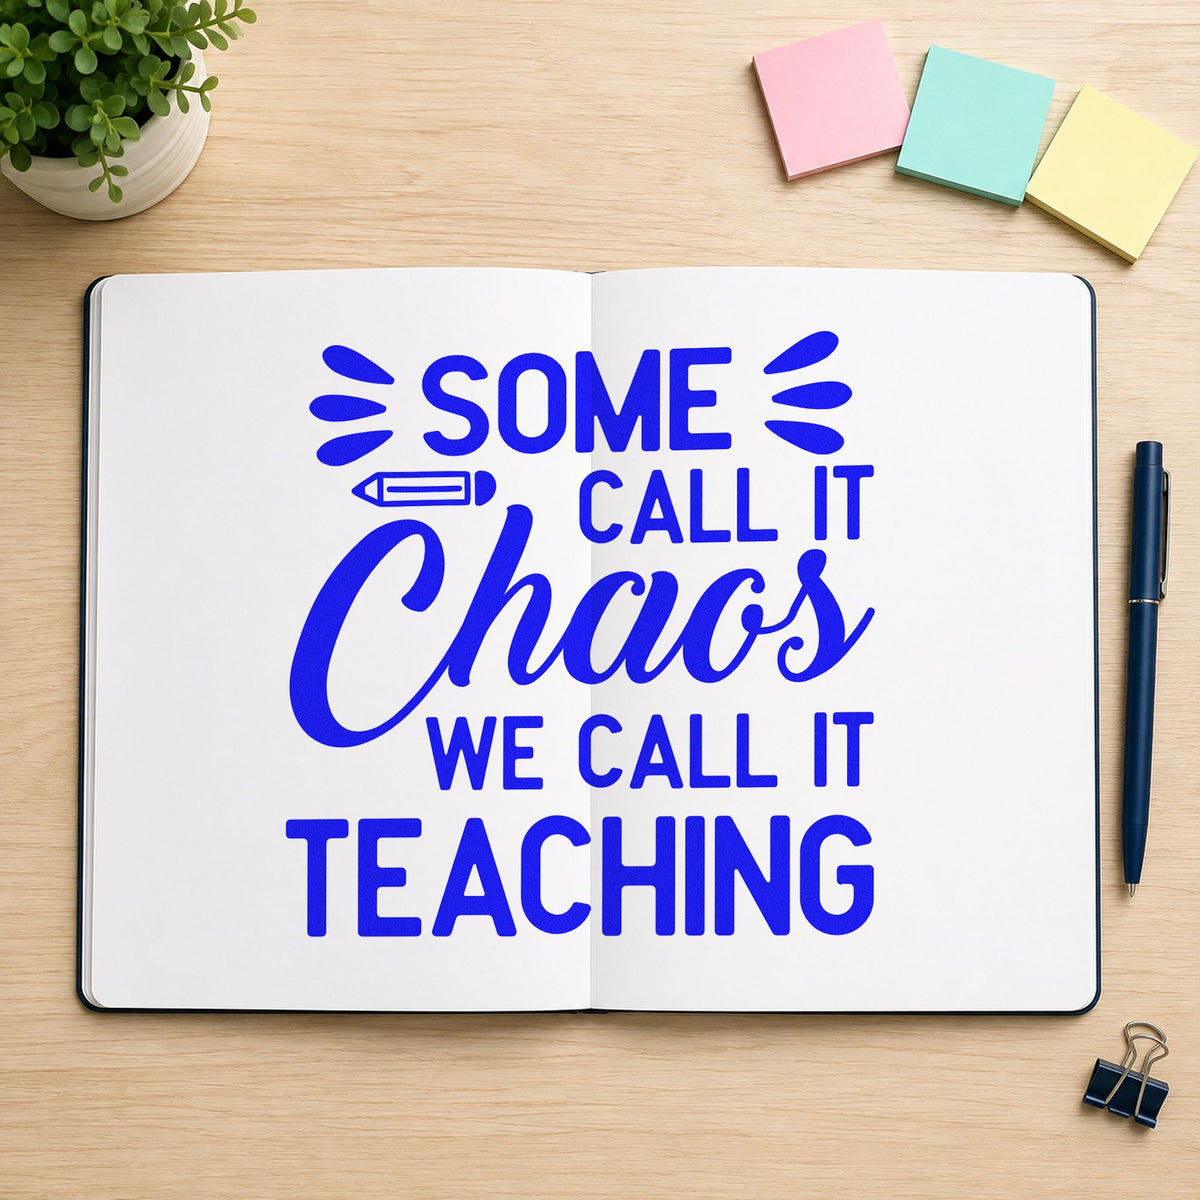 SOME
CALL IT
Chaos
WE CALL IT
TEACHING